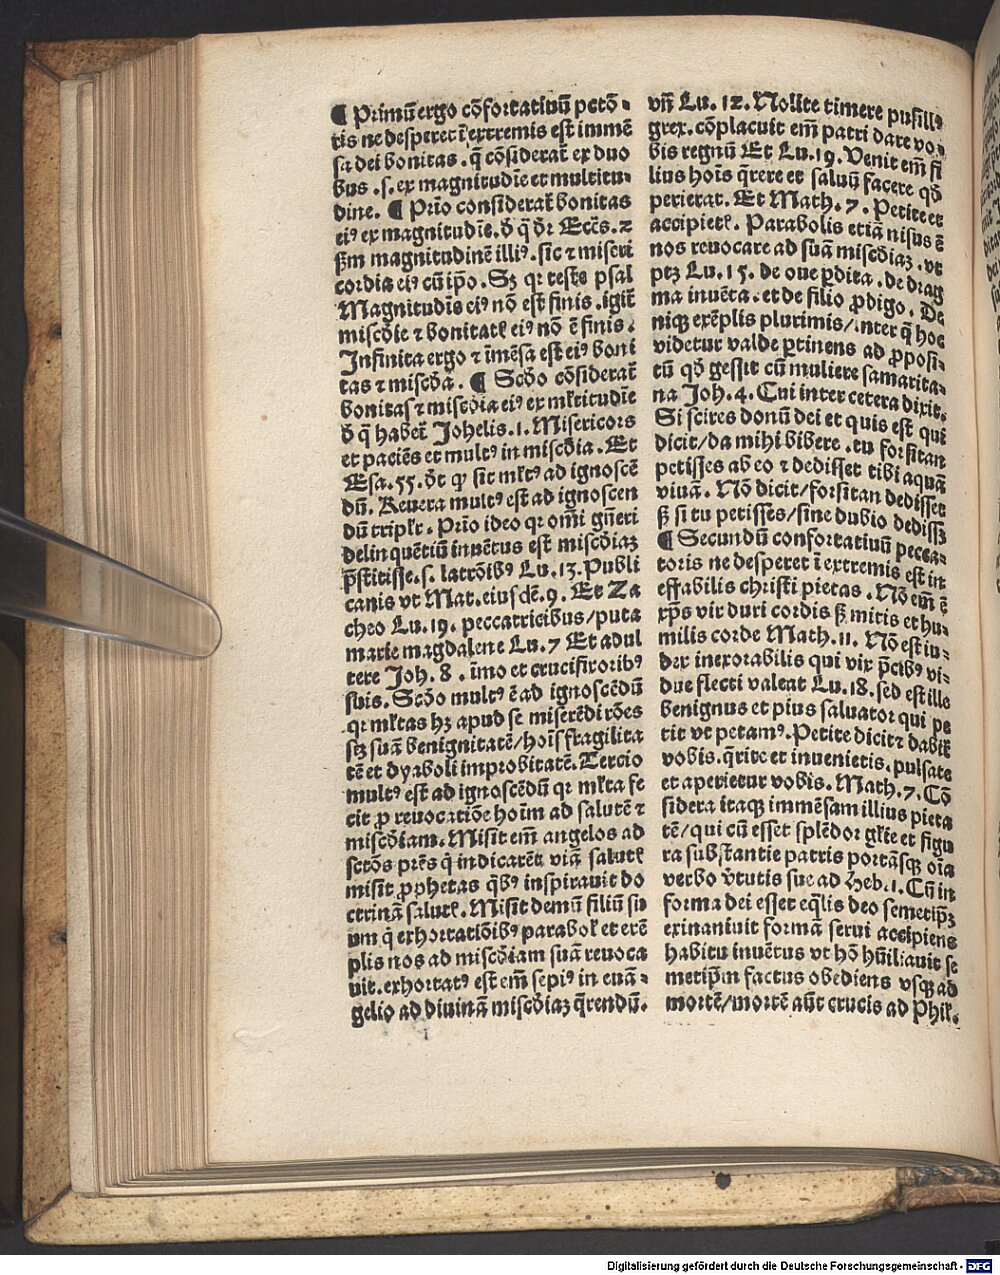 ¶ Primū ergo cōfortatiuū pctō-
ris ne desperet ī extremis est immē
sa dei bonitas . q̄ cōsiderat̄ ex duo
bus .s. ex magnitudīe et multitu-
dine. ¶ Prīo considerat̄ bonitas
eiꝰ ex magnitudīe. d̄ q̄ dr̄ Eccs̄. 2
ẜm magnitudinē illiꝰ. sic ⁊ miseri
cordia eiꝰ cū ip̄o. Sꝫ qꝛ teste psal
Magnitudīs eiꝰ nō est finis . igit̄
miscd̄ie ⁊ bonitatꝭ eiꝰ nō ē finis.
Infinita ergo ⁊ īmēsa est eiꝰ boni
tas ⁊ miscd̄a . ¶ Scd̄o cōsiderat̄
bonitas ⁊ miscd̄ia eiꝰ ex ml̄titudīe
d̄ q̄ habet̄ Johelis .1. Misericors
et paciēs et multꝰ in miscd̄ia . Et
Esa. 55. dt̄ ꝙ sit ml̄tꝰ ad ignoscē
dū. Reuera multꝰ est ad ignoscen
dū triplr̄. Prīo ideo qꝛ om̄i gn̄eri
delinquētiū inuētus est miscd̄iaꝫ
p̄stitisse .s. latrōibꝰ Lu. 13. Publi
canis vt Mat. eiusdē. 9. Et Za
cheo Lu. 19. peccatricibus/puta
marie magdalene Lu. 7 Et adul
tere Joh. 8 . īmo et crucifixoribꝰ
suis. Scd̄o multꝰ ē ad ignoscēdū
qꝛ ml̄tas hꝫ apud se miserēdi rōes
scꝫ suā benignitatē/hoīs fragilita
tē et dyaboli improbitatē. Tercio
multꝰ est ad ignoscēdū qꝛ ml̄ta fe
cit ꝓ reuocatiōe hoīm ad salutē ⁊
miscd̄iam. Misit em̄ angelos ad
sctōs prēs q̄ indicarēt viā salutꝭ
misit ꝓphetas qb̄ꝰ inspirauit do
ctrinā salutꝭ. Misit demū filiū su
um q̄ exhortatiōibꝰ parabol̄ et exē
plis nos ad miscd̄iam suā reuoca
uit. exhortatꝰ est em̄ sepiꝰ in euā-
gelio ad diuinā miscd̄iaꝫ q̄rendū.
vn̄ Lu. 12. Nolite timere pusillꝰ
grex. cōplacuit em̄ patri dare vo-
bis regnū Et Lu. 19. Venit em̄ fi
lius hoīs q̄rere et saluū facere qd̄
perierat. Et Math. 7. Petite et
accipietꝭ. Parabolis etiā nisus ē
nos reuocare ad suā miscd̄iaꝫ. vt
ptꝫ Lu. 15. de oue ꝑdita . de drag
ma inuēta. et de filio ꝓdigo. De
niqꝫ exēplis plurimis/inter q̄ hoc
videtur valde ꝑtinens ad ꝓposi-
tū qd̄ gessit cū muliere samarita-
na Joh. 4. Cui inter cetera dixit.
Si scires donū dei et quis est qui
dicit/da mihi bibere . tu forsitan
petisses ab eo ⁊ dedisset tibi aquā
viuā. Nō dicit/forsitan dedisset
ẜ si tu petisses/sine dubio dedissꝫ
¶ Secundū confortatiuū pecca-
toris ne desperet ī extremis est in
effabilis christi pietas . Nō em̄ ē
xp̄s vir duri cordis ẜ mitis et hu-
milis corde Math. 11. Nō est iu-
dex inexorabilis qui vix p̄cibꝰ vi-
due flecti valeat Lu. 18. sed est ille
benignus et pius saluator qui pe
tit vt petamꝰ. Petite dicit ⁊ dabit̄
vobis. q̄rite et inuenietis. pulsate
et aperietur vobis. Math. 7. Cō
sidera itaqꝫ immēsam illius pieta
tē/qui cū esset splēdor gl̄ie et figu
ra substantie patris portāsqꝫ oīa
verbo v̄tutis sue ad Heb. 1. Cū in
forma dei esset eq̄lis deo semetip̄ꝫ
exinaniuit formā serui accipiens
habitu inuētus vt hō hūiliauit se
metip̄m factus obediens vsqꝫ ad
mortē/mortē aūt crucis ad Phil.
Digitalisierung gefördert durch die Deutsche Forschungsgemeinschaft - DFG